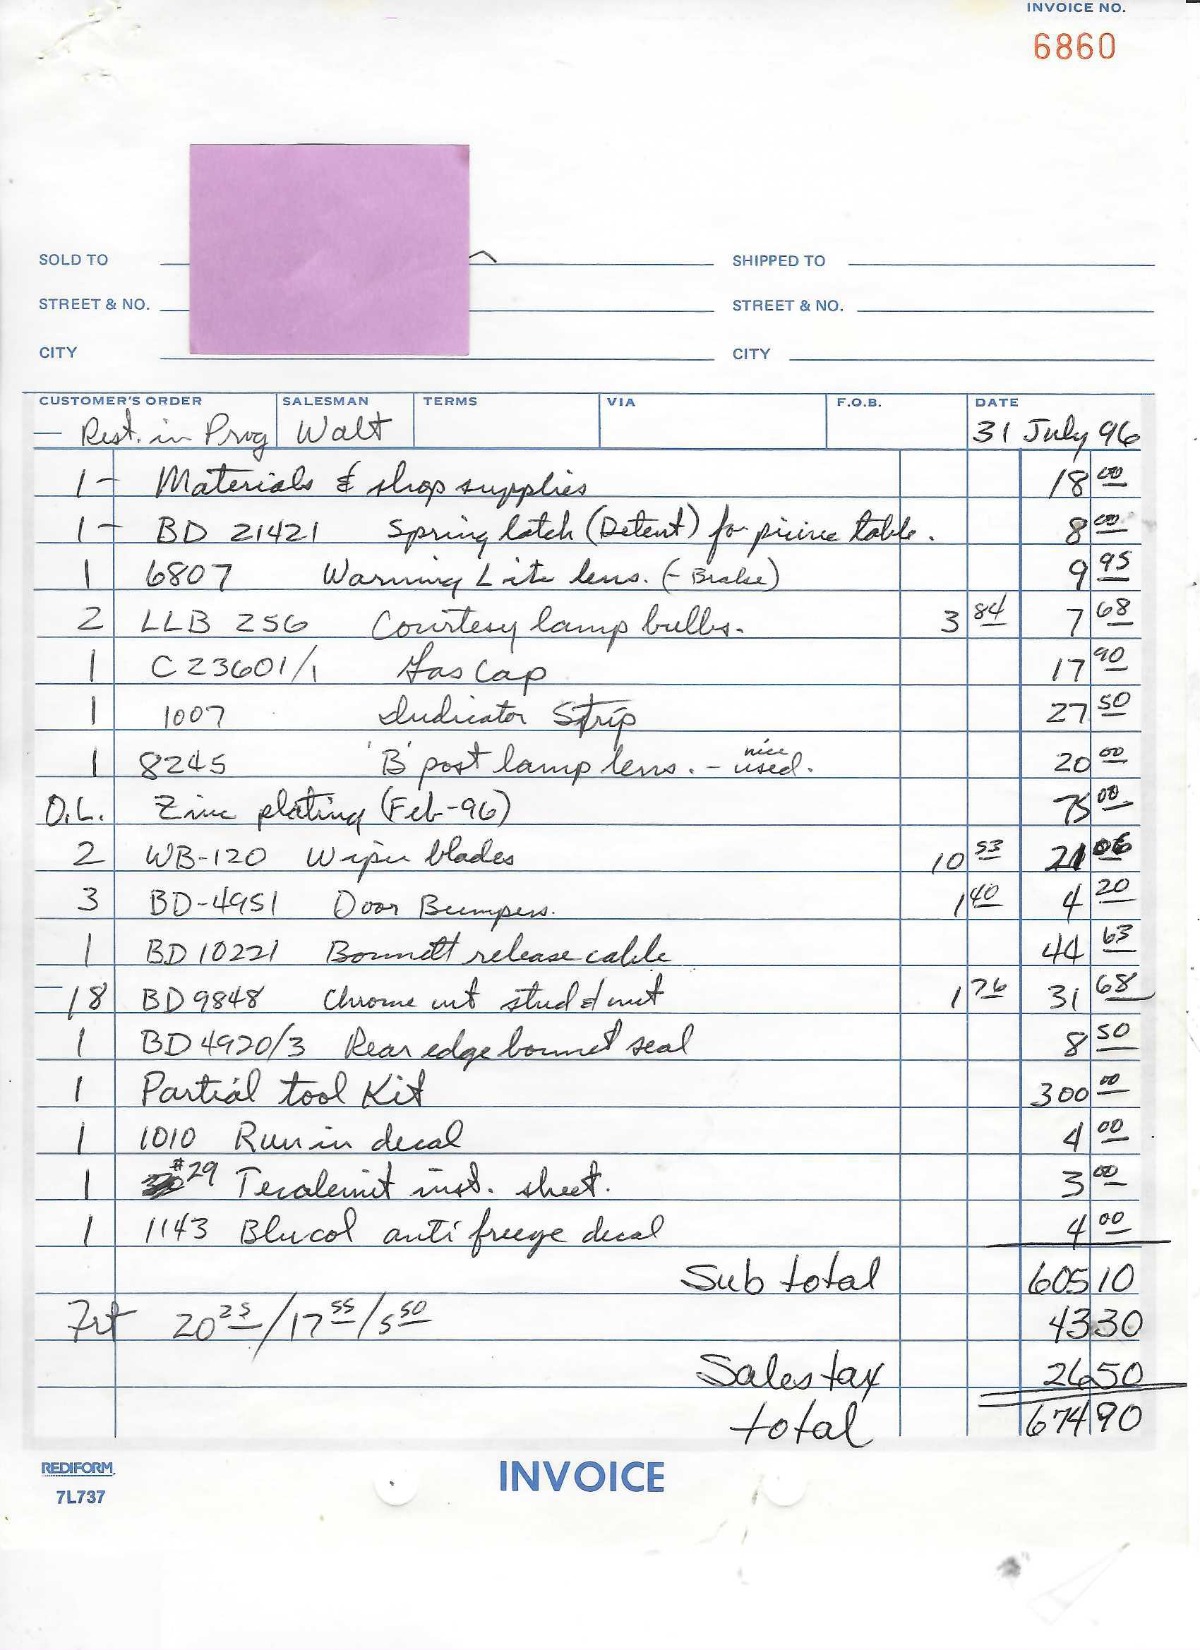 INVOICE NO.
6860
SOLD TO SHIPPED TO
STREET & NO. STREET & NO.
CITY CITY
CUSTOMER'S ORDER SALESMAN TERMS VIA F.O.B. DATE
— Rest. in Prog Walt 31 July 96
1 - Materials & shop supplies 18 00
1 - BD 21421 Spring latch (Detent) for picinc table. 8 00
1 6807 Warning Lite lens. (- Brake) 9 95
2 LLB 256 Courtesy lamp bulbs. 3 84 7 68
1 C23601/1 Gas Cap 17 90
1 1007 Indicator Strip 27 50
1 8245 'B' post lamp lens. - nice used. 20 00
O.L. Zinc plating (Feb-96) 75 00
2 WB-120 Wiper blades 10 53 21 06
3 BD-4951 Door Bumpers. 1 40 4 20
1 BD 10221 Bonnett release cable 44 63
18 BD 9848 Chrome int stud & nut 1 76 31 68
1 BD 4920/3 Rear edge bonnet seal 8 50
1 Partial tool Kit 300 00
1 1010 Run in decal 4 00
1 #29 Tecalemit inst. sheet. 3 00
1 1143 Blucol anti freeze decal 4 00
Sub total 605 10
Frt 20 25/17 55/5 50 43 30
Sales tax 26 50
total 674 90
REDIFORM
7L737
INVOICE